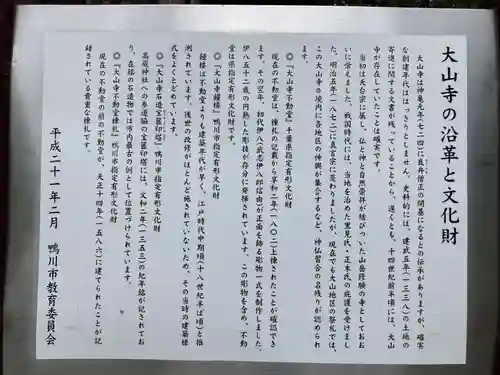 大山寺の沿革と文化財
大山寺は神亀元年(七二四)に良弁僧正の開基になるとの伝承がありますが、確実
な創建年代ははっきりとしません。史料的には、建武五年(一三三八)の土地の
寄進に関する文書が残っていることから、遅くとも、十四世紀前半頃には、大山
寺が存在していたことは確実です。
当初は天台宗に属し、仏と神と自然崇拝が結びついた山岳修験の寺としておお
いに栄えました。戦国時代には、当地を治めた里見氏・正木氏の庇護を受けまし
た。明治五年(一八七二)に真言宗に変わりましたが、現在でも大山地区の祭礼では、
この大山寺の境内に各地区の神輿が集合するなど、神仏習合の名残りが認められ
ます。
◎『大山寺不動堂』千葉県指定有形文化財
現在の不動堂は、棟札の記載から享和二年(一八〇二)上棟されたことが確認でき
ます。その翌年、初代伊八(武志伊八郎信由)が正面を飾る彫物一式を制作しました。
伊八五十二歳の円熟した彫技が存分に発揮されています。この彫物を含め、不動
堂は県指定有形文化財です。
◎『大山寺鐘楼』鴨川市指定有形文化財
鐘楼は不動堂よりも建築年代が早く、江戸時代中期頃(十八世紀半ば頃)と推
測されています。後世の改修がほとんど施されていないため、その当時の建築様
式をよくとどめています。
◎『大山寺石造宝篋印塔』鴨川市指定有形文化財
高蔵神社への参道脇の宝篋印塔には、文和二年(一三五三)の紀年銘が記されてお
り、在銘の石造物では市内最古の例として位置づけられています。
◎『大山寺不動堂棟札』鴨川市指定有形文化財
現在の不動堂の前の不動堂が、天正十四年(一五八六)に建てられたことが記
録されている貴重な棟札です。
平成二十一年二月　鴨川市教育委員会